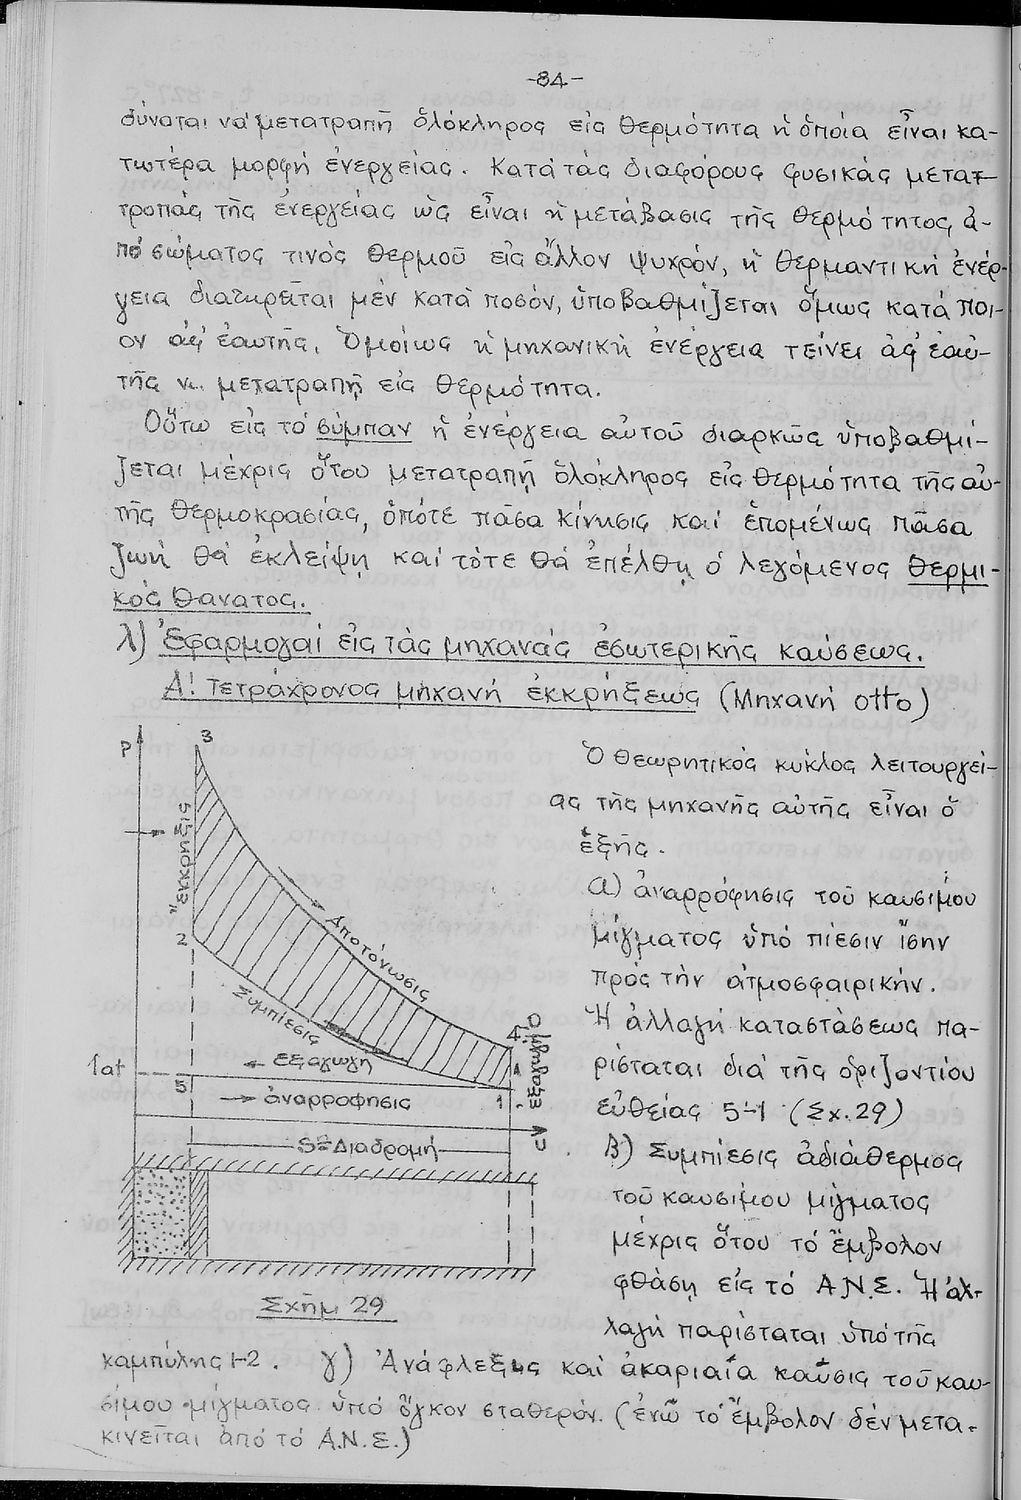 -84-
δύναται νά μετατραπῇ ὁλόκληρος εἰς θερμότητα ἡ ὁποία εἶναι κα-
τωτέρα μορφή ἐνεργείας. Κατά τάς διαφόρους φυσικάς μετατ-
τροπάς τῆς ἐνεργείας ὡς εἶναι ἡ μετάβασις τῆς θερμότητος ἀ-
πό σώματος τινός θερμοῦ εἰς ἄλλον ψυχρόν, ἡ θερμαντική ἐνέρ-
γεια διατηρεῖται μέν κατά ποσόν, ὑποβαθμίζεται ὅμως κατά ποι-
ον ἀφ' ἑαυτῆς. Ὁμοίως ἡ μηχανική ἐνέργεια τείνει ἀφ' ἑαυ-
τῆς ν. μετατραπῇ εἰς θερμότητα.
Οὕτω εἰς τό σύμπαν ἡ ἐνέργεια αὐτοῦ διαρκῶς ὑποβαθμί-
ζεται μέχρις ὅτου μετατραπῇ ὁλόκληρος εἰς θερμότητα τῆς αὐ-
τῆς θερμοκρασίας, ὁπότε πᾶσα κίνησις καί ἑπομένως πᾶσα
ζωή θά ἐκλείψῃ καί τότε θά ἐπέλθῃ ὁ λεγόμενος θερμι-
κός θάνατος.
λ) Ἐφαρμογαί εἰς τάς μηχανάς ἐσωτερικῆς καύσεως.
Α! Τετράχρονος μηχανή ἐκκρήξεως (Μηχανή otto)
P
3
"ἐκκρηξις"
2
Ἀποτόνωσις
Συμπίεσις
4
ἐξαγωγή
ἐξαγωγή
1at
5
ἀναρρόφησις
1
υ
S=Διαδρομή
Σχῆμ 29
Ὁ θεωρητικός κύκλος λειτουργεί-
ας τῆς μηχανῆς αὐτῆς εἶναι ὁ
ἑξῆς.
α) ἀναρρόφησις τοῦ καυσίμου
μίγματος ὑπό πίεσιν ἴσην
πρός τήν ἀτμοσφαιρικήν.
Ἡ ἀλλαγή καταστάσεως πα-
ρίσταται διά τῆς ὁριζοντίου
εὐθείας 5-1 (Σχ. 29)
β) Συμπίεσις ἀδιάθερμος
τοῦ καυσίμου μίγματος
μέχρις ὅτου τό ἔμβολον
φθάσῃ εἰς τό Α.Ν.Σ. Ἡ ἀλ-
λαγή παρίσταται ὑπό τῆς
καμπύλης 1-2. γ) Ἀνάφλεξις καί ἀκαριαία καῦσις τοῦ καυ-
σίμου μίγματος ὑπό ὄγκον σταθερόν. (ἐνῷ τό ἔμβολον δέν μετα-
κινεῖται ἀπό τό Α.Ν.Σ.)